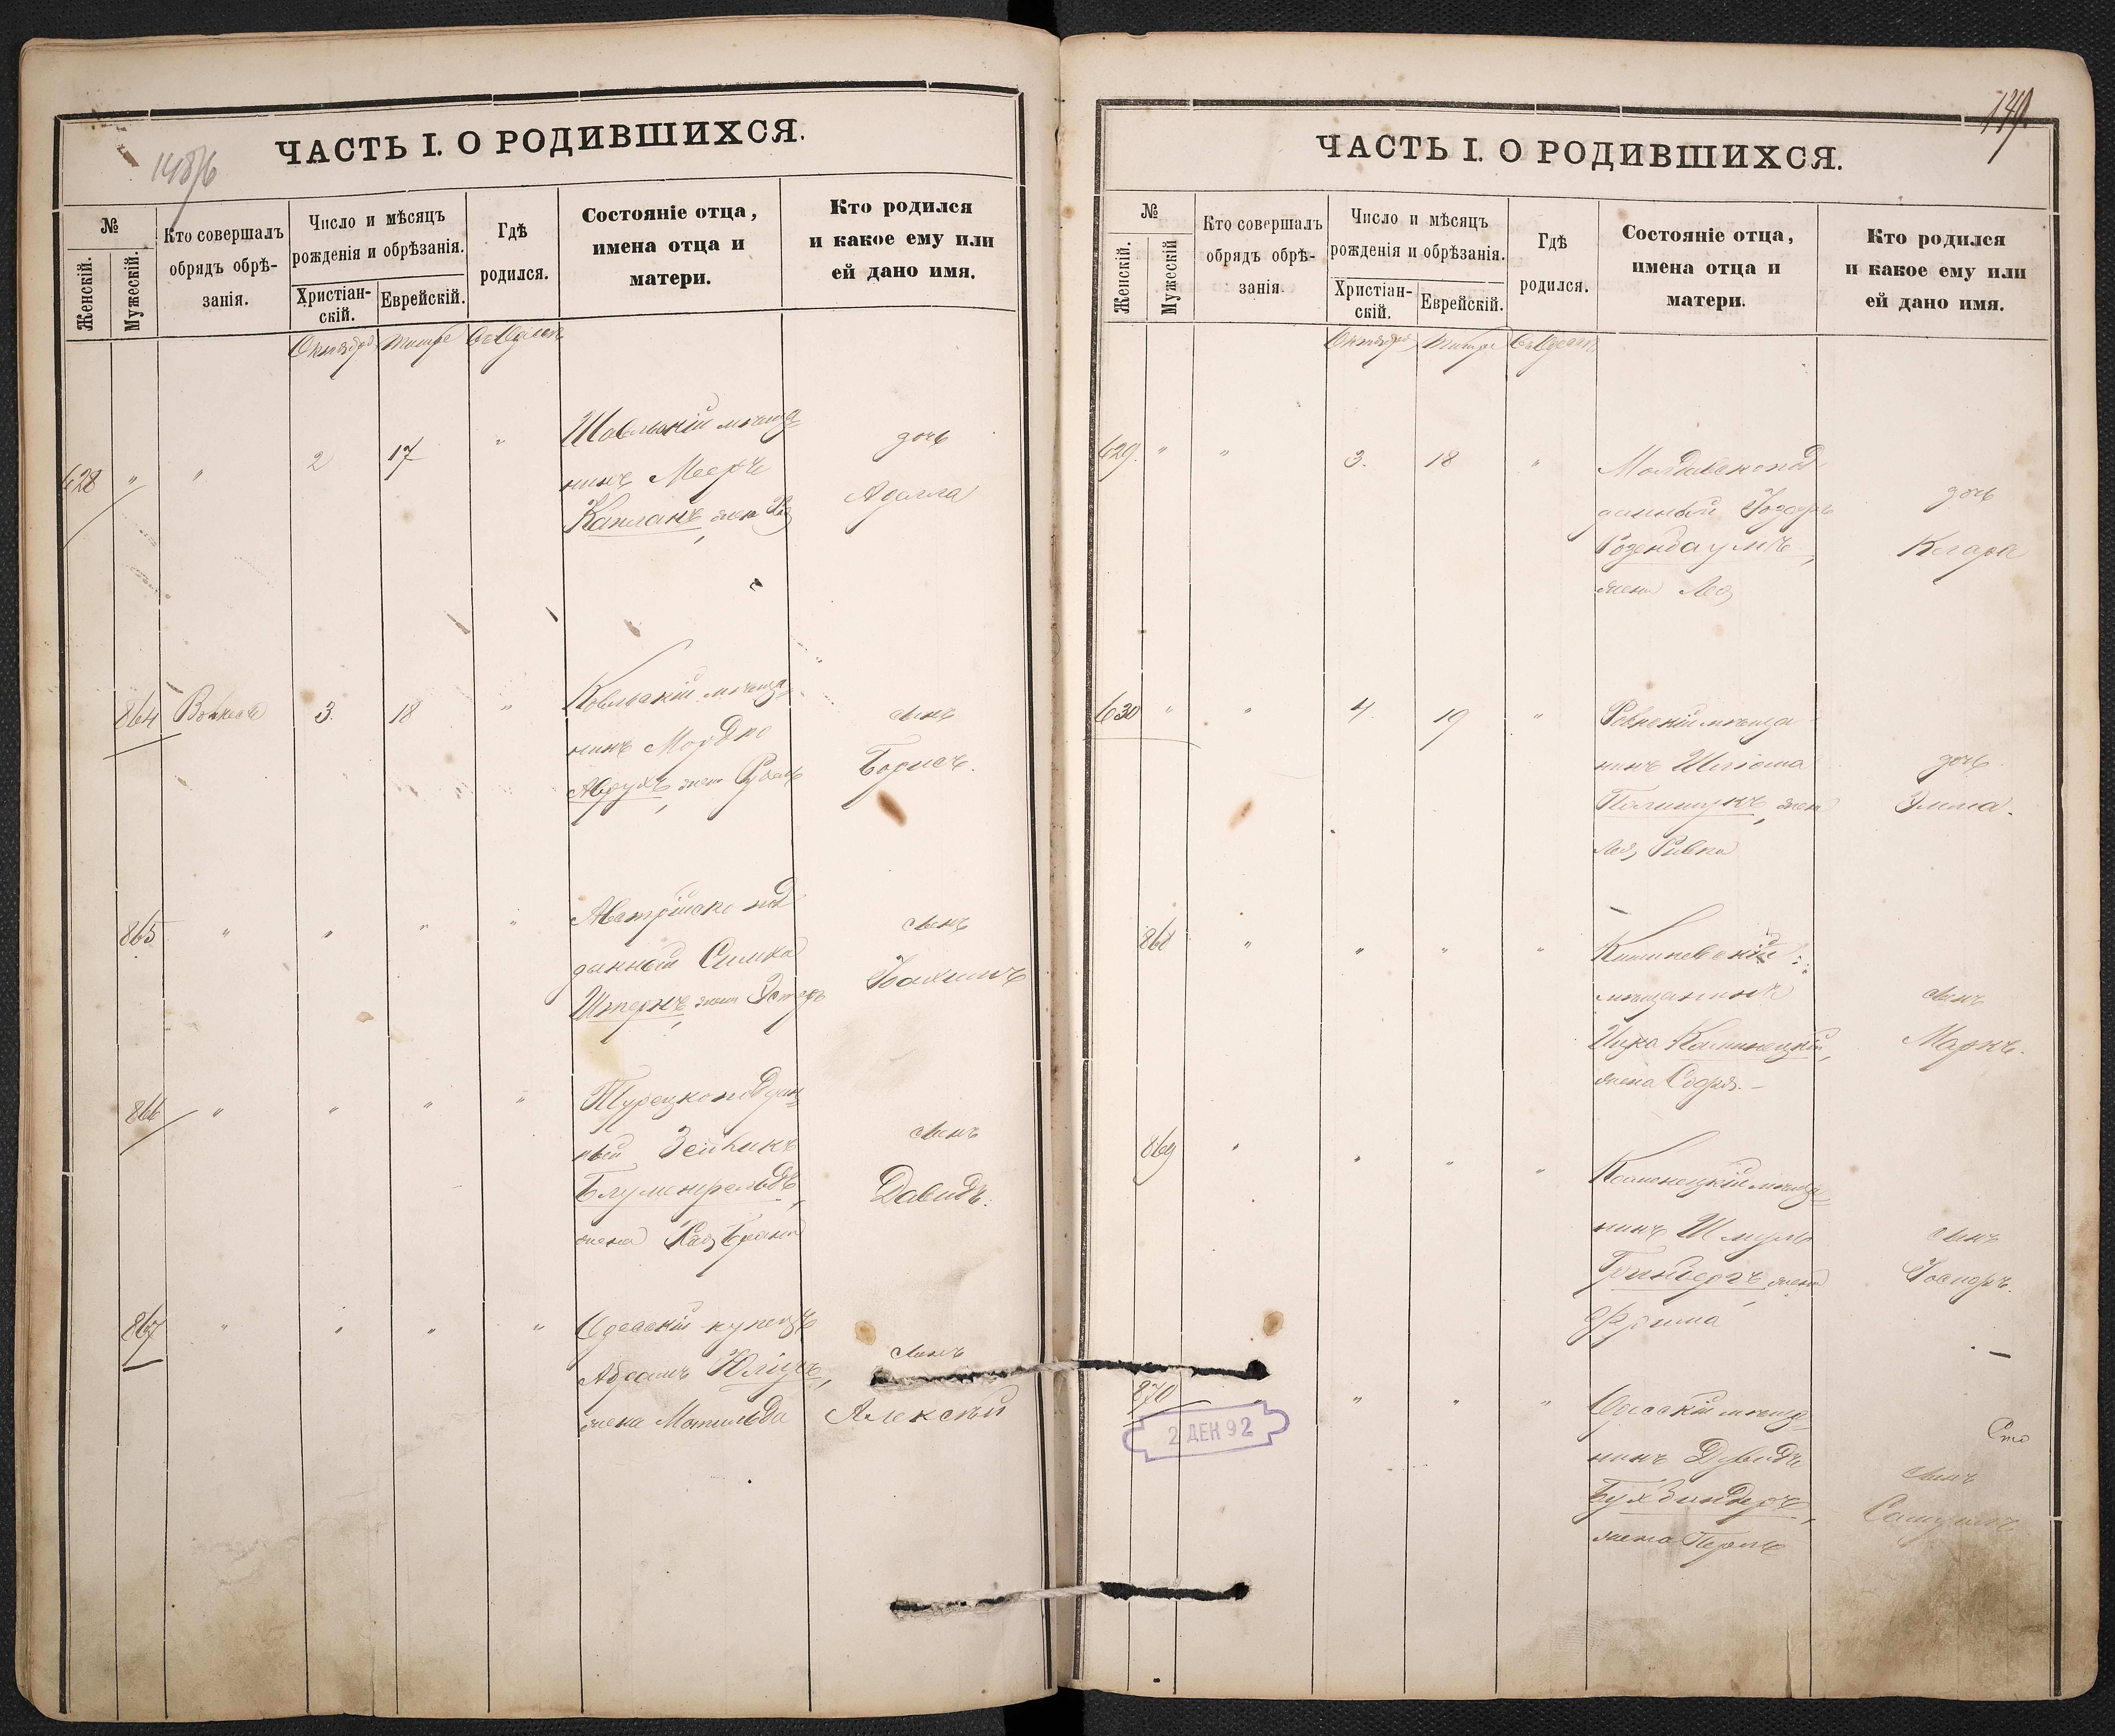 ЧАСТЬ I. О РОДИВШИХСЯ.
148/6
№
Женскій.
Мужескій.
Кто совершалъ
обрядъ обрѣ-
занія.
Число и мѣсяцъ
рожденія и обрѣзанія.
Христіан-
скій.
Еврейскій.
Гдѣ
родился.
Состояніе отца,
имена отца и
матери.
Кто родился
и какое ему или
ей дано имя.
Октября Тишре Въ Одессѣ
628 " " 2 17 "
Шавельскій мѣща
нинъ Мееръ
Капланъ, жена
дочь
Аделла
864 3. 18 "
Ковельскій мѣща
нинъ Мордко
Аврухъ, жена
сынъ
Борисъ.
865 " " " "
Австрійско под
данный Симха
Штернъ, жена Эстеръ
сынъ
Іоахимъ
866 " " " "
Турецкоподдан
ный Зейликъ
Блуменфельдъ,
жена Хая Брана
сынъ
Давидъ.
867 " " " "
Одесскій купецъ
Абрамъ
жена Матильда
сынъ
Алексѣй
ЧАСТЬ I. О РОДИВШИХСЯ.
149.
№
Женскій.
Мужескій
Кто совершалъ
обрядъ обрѣ-
занія.
Число и мѣсяцъ
рожденія и обрѣзанія.
Христіан-
скій.
Еврейскій.
Гдѣ
родился.
Состояніе отца,
имена отца и
матери.
Кто родился
и какое ему или
ей дано имя.
Октября Тишре Въ Одессѣ
629. " " 3. 18 "
Молдавскопод
данный
Розенбаумъ,
жена Лея
дочь
Клара
630 " " 4. 19 "
Ровенскій мѣща
нинъ Шліома
Полищукъ, жена
Лея, Ривка
дочь
Эмма.
868 " " " "
Кишиневскій
мѣщанинъ
Ицка Каменецкій,
жена Софія. -
сынъ
Маркъ.
869 " " " "
Каменецкій мѣща
нинъ Шмуль
Гринбергъ, жена
Фрима
сынъ
Іосифъ.
870 " " " "
Одесскій мѣща
нинъ Дувидъ
Бухбиндеръ,
жена Перль
Сто
сынъ
Самуилъ
2 ДЕК 92